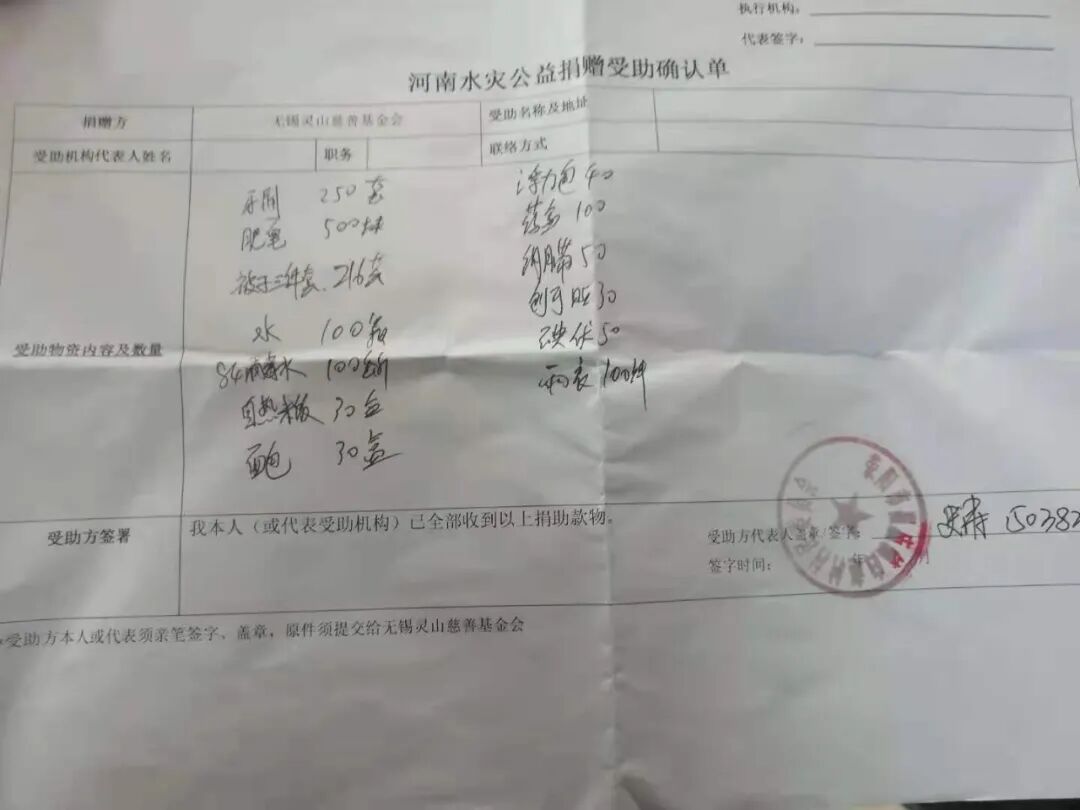 执行机构：
代表签字：
河南水灾公益捐赠受助确认单
捐赠方 无锡灵山慈善基金会 受助名称及地址
受助机构代表人姓名 职务 联络方式
受助物资内容及数量
牙刷 250套
肥皂 500块
被子三件套 216套
水 100箱
84消毒水 100
自热米饭 30盒
面包 30盒
浮力包 40
100
50
创可贴 30
碘伏 50
雨衣 100件
受助方签署 我本人（或代表受助机构）已全部收到以上捐助款物。
受助方代表人盖章/签名： 150382
签字时间： 年 月
受助方本人或代表须亲笔签字、盖章，原件须提交给无锡灵山慈善基金会